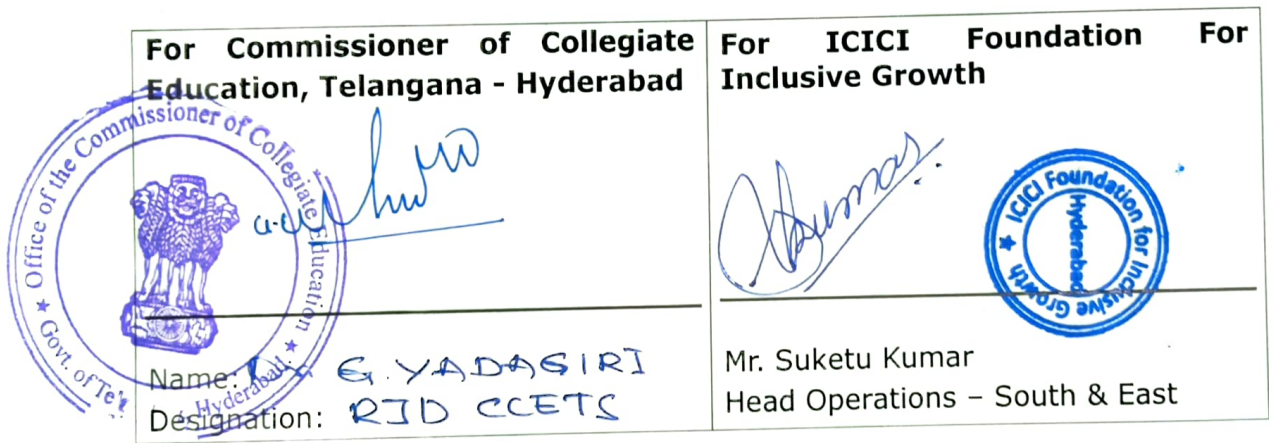 For Commissioner of Collegiate
Education, Telangana - Hyderabad
Office of the Commissioner of Collegiate Education
★ Govt. of Te
Hyderabad. ★
Name: G. YADAGIRI
Designation: RJD CCETS
For ICICI Foundation For
Inclusive Growth
Kumar
★ ICICI Foundation for Inclusive Growth
Hyderabad
Mr. Suketu Kumar
Head Operations – South & East